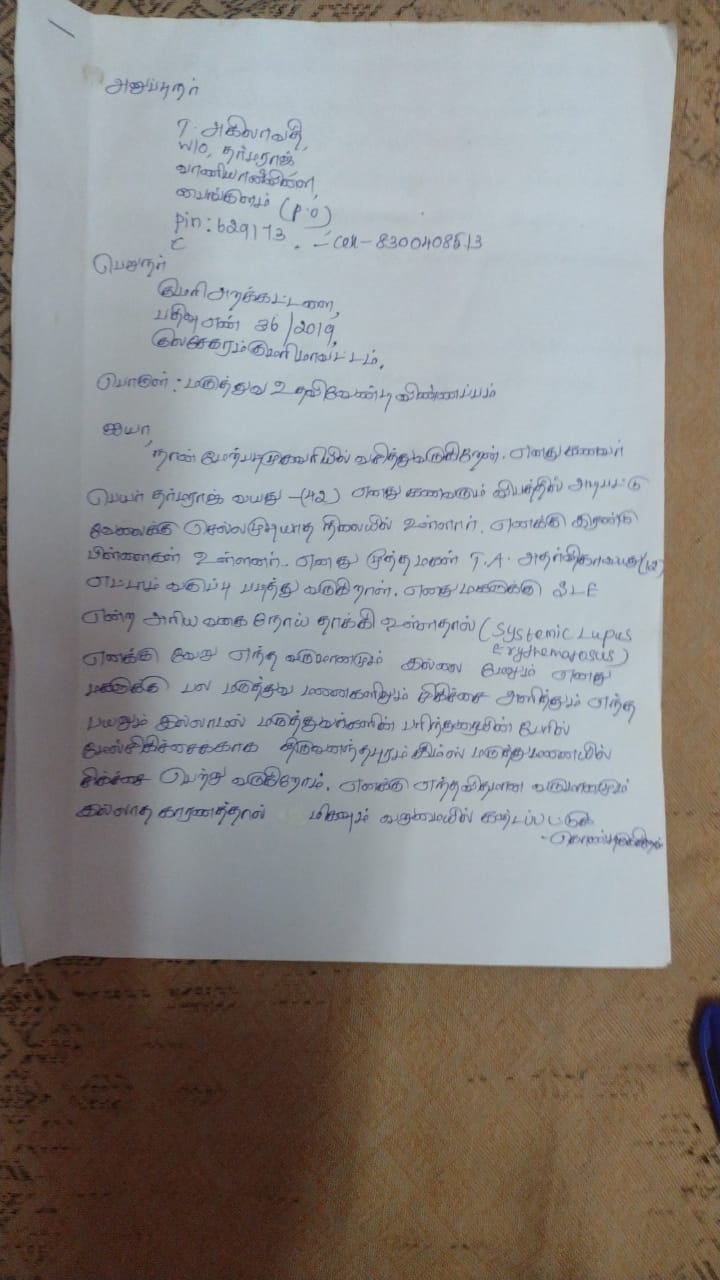 அனுப்புநர்
T. அகிலாவதி,
W/O, தர்மராஜ்
வாணியான்விளை,
பைங்குளம் (P.O)
Pin: 629173. - Cell - 8300408513
பெறுநர்
குமரி அறக்கட்டளை,
பதிவு எண் 36/2019,
குலசேகரம் குமரி மாவட்டம்.
பொருள்: மருத்துவ உதவி வேண்டி விண்ணப்பம்
ஐயா,
நான் மேற்படி முகவரியில் வசித்து வருகிறேன். எனது கணவர்
பெயர் தர்மராஜ் வயது -(42) எனது கணவரும் விபத்தில் அடிபட்டு
வேலைக்கு செல்லமுடியாத நிலையில் உள்ளார். எனக்கு இரண்டு
பிள்ளைகள் உள்ளனர். எனது மூத்த மகள் T.A.
எட்டாம் வகுப்பு படித்து வருகிறாள். எனது மகளுக்கு SLE
என்ற அரிய வகை நோய் தாக்கி உள்ளதால் (Systemic Lupus
Erythematosus)
எனக்கு வேறு எந்த வருமானமும் இல்லை மேலும் எனது
மகளுக்கு பல மருத்துவ மணைகளிலும் சிகிச்சை அளித்தும் எந்த
பயனும் இல்லாமல் மருத்துவர்களின் பரிந்துரையின் பேரில்
மேல்சிகிச்சைக்காக திருவனந்தபுரம் கிம்ஸ் மருத்துமணையில்
சிகிச்சை பெற்று வருகிறோம். எனக்கு எந்தவிதமான வருமானமும்
இல்லாத காரணத்தால் மிகவும் வறுமையில் கஷ்டப்பட்டுக்